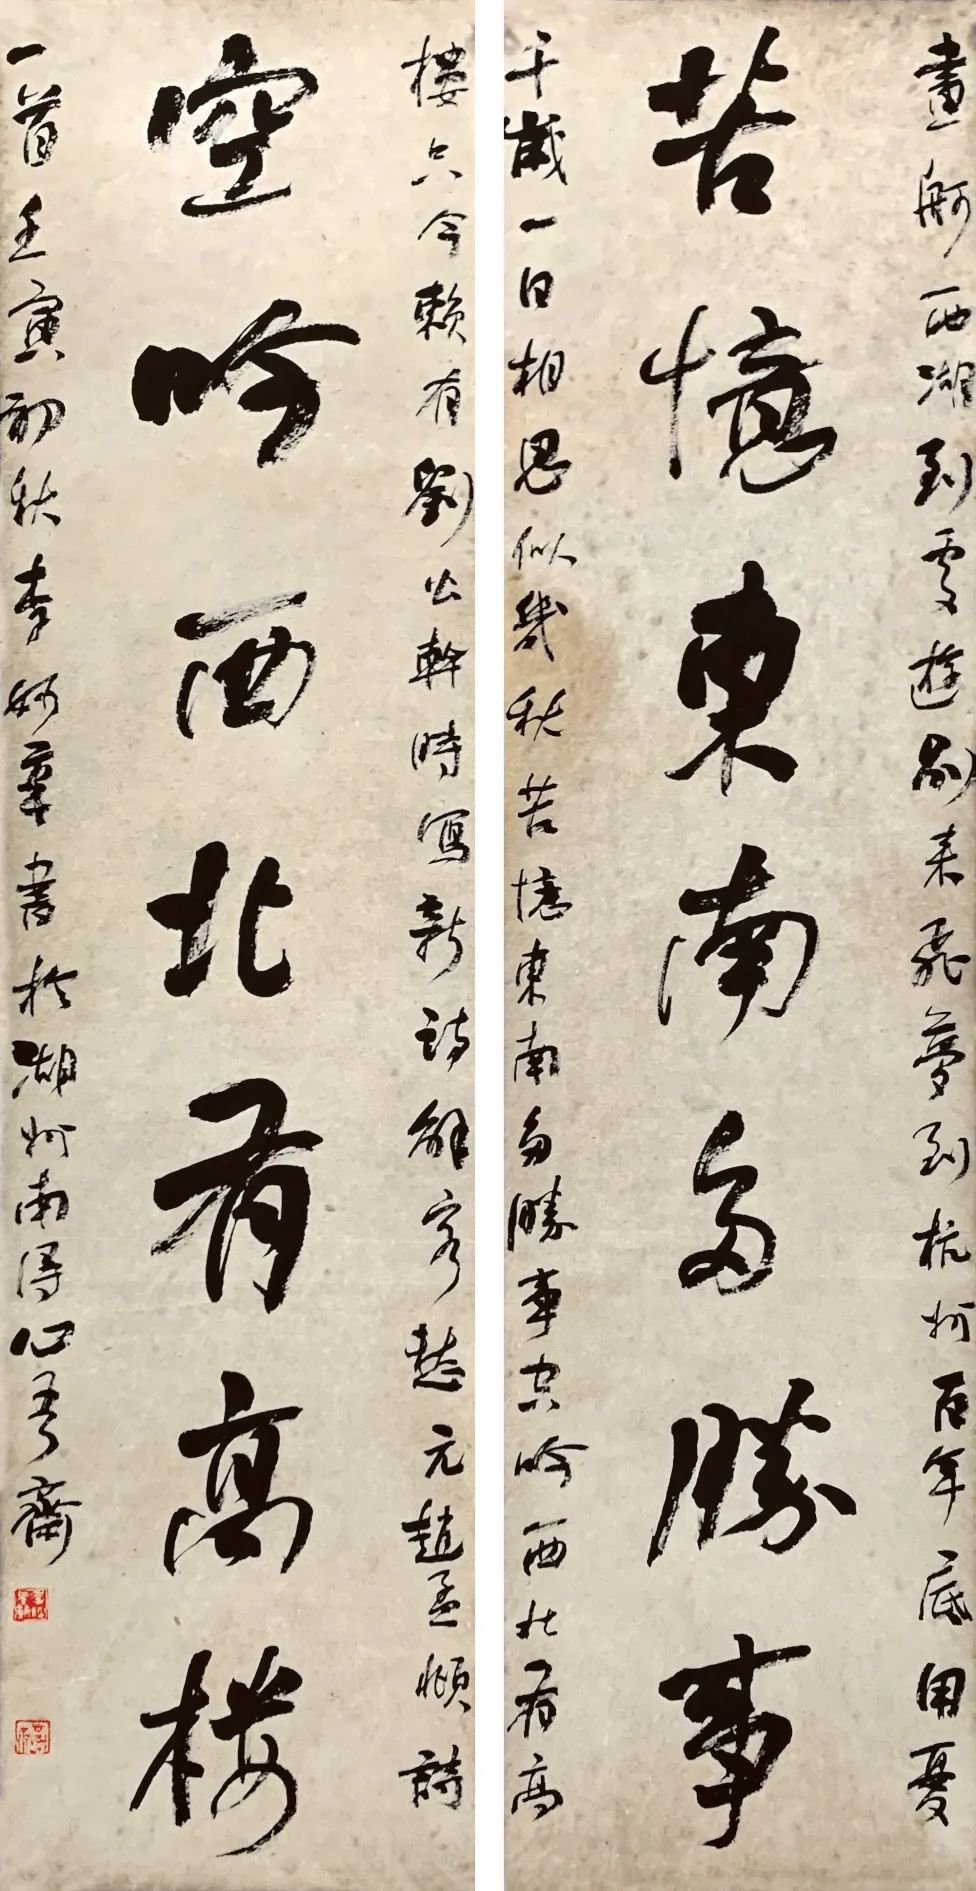 畫舸西湖到處遊別來飛夢到杭州百年底用憂
苦憶東南多勝事
千歲一日相思似幾秋苦憶東南多勝事空吟西北有高
樓只今賴有劉公幹時寫新詩解客愁元趙孟頫詩
空吟西北有高樓
一首壬寅初秋李書於湖州南潯心齋